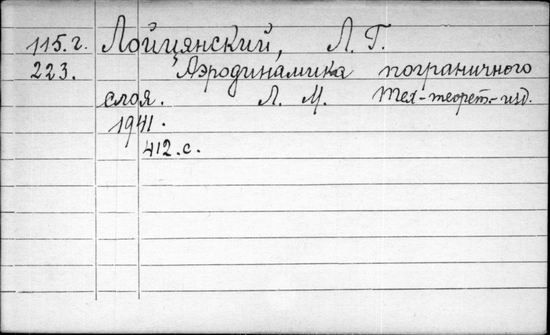 115.г. Лойцянский, Л. Г.
223. Аэродинамика пограничного
слоя. Л. М. Тех-теорет.-изд.
1941.
412.с.